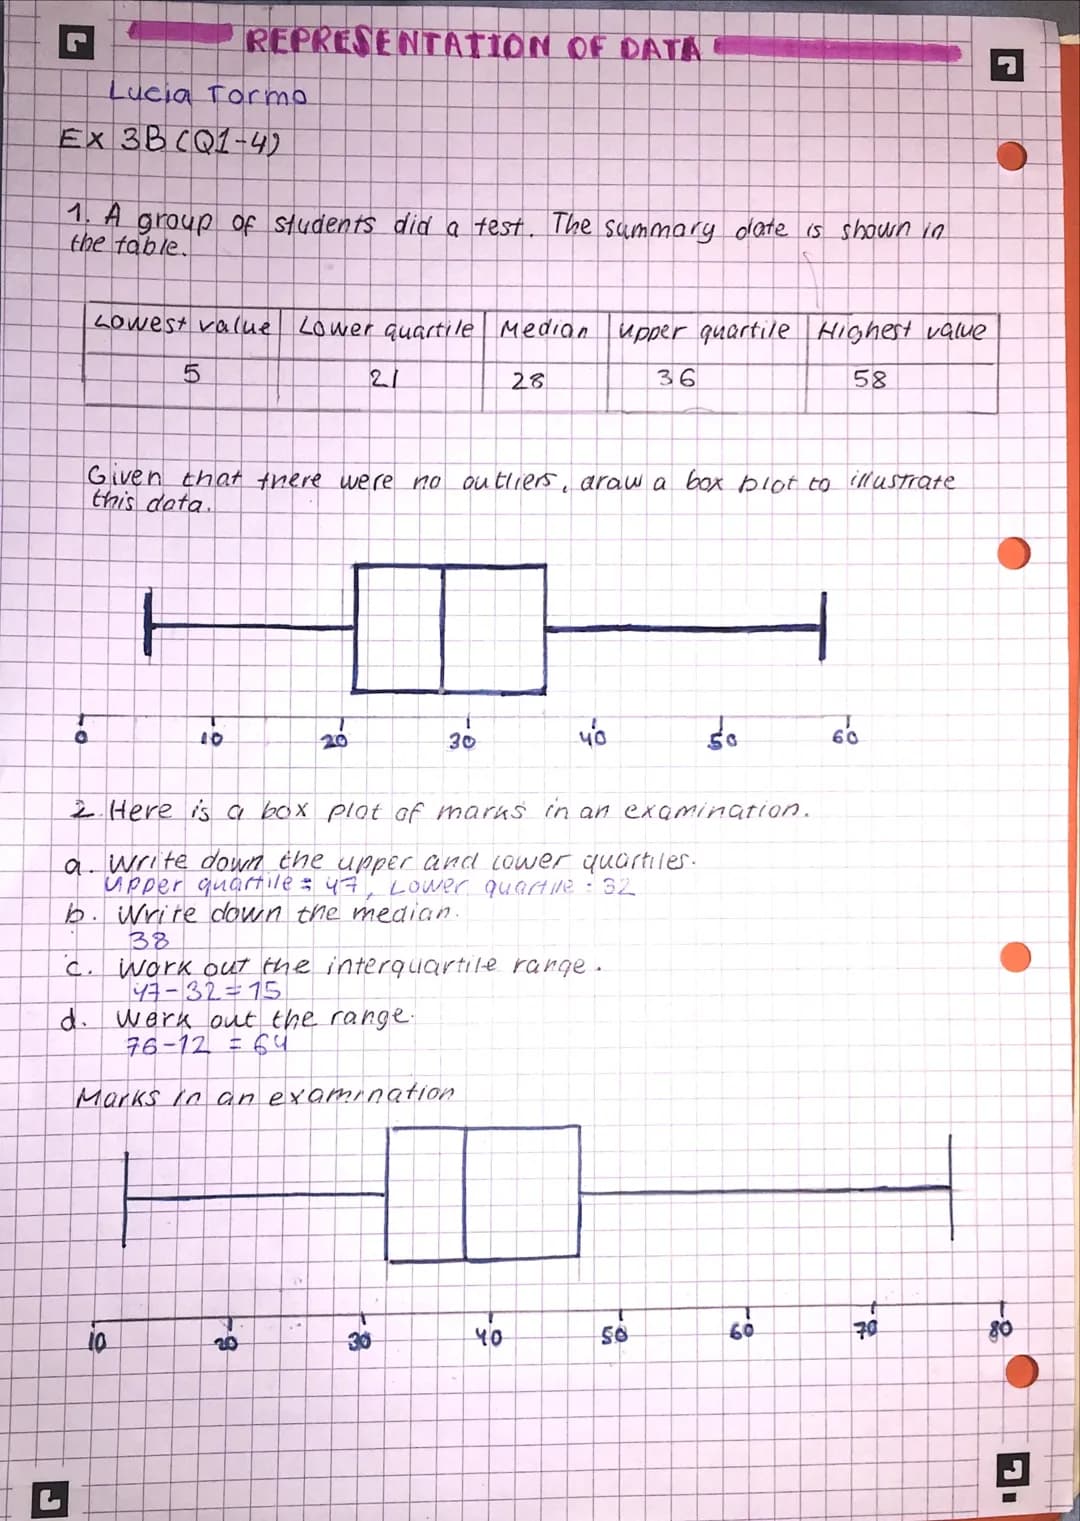 REPRESENTATION OF DATA
Lucia Tormo
EX 3B (Q1-4)
1. A group of students did a test. The summary date is shown in
the table.
Lowest value Lower quartile Median upper quartile Highest value
5 21 28 36 58
Given that there were no outliers, draw a box plot to illustrate
this data.
0 10 20 30 40 50 60
2. Here is a box plot of marks in an examination.
a. Write down the upper and lower quartiles.
Upper quartile = 47, Lower quartile : 32
b. Write down the median.
38
c. Work out the interquartile range.
47-32=15
d. Work out the range.
76-12 = 64
Marks in an examination
10 20 30 40 50 60 70 80